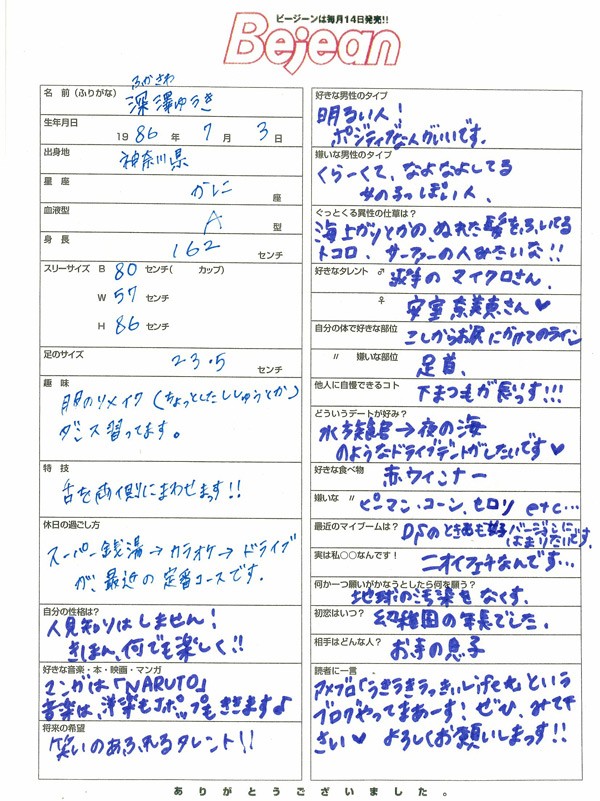 ビージーンは毎月14日発売!!
Bejean
名 前(ふりがな)
ふかさわ
深澤ゆうき
生年月日
1986年7月3日
出身地
神奈川県
星 座
かに座
血液型
A型
身 長
162センチ
スリーサイズ B 80センチ( カップ)
W 57センチ
H 86センチ
足のサイズ
23.5センチ
趣 味
服のリメイク(ちょっとしたししゅうとか)
ダンス習ってます。
特 技
舌を両側にまわせまっす!!
休日の過ごし方
スーパー銭湯→カラオケ→ドライブ
が、最近の定番コースです。
自分の性格は?
人見知りはしません!
きほん、何でも楽しく!!
好きな音楽・本・映画・マンガ
マンガは「NARUTO」
音楽は、洋楽もJポップもききます♪
将来の希望
笑いのあふれるタレント!!
好きな男性のタイプ
明るい人!
ポジティブな人がいいです。
嫌いな男性のタイプ
くらーくて、なよなよしてる
女の子っぽい人、
ぐっとくる異性の仕草は?
海上がりとかの、ぬれた髪をふいてる
トコロ、サーファーの人みたいな!!
好きなタレント ♂
歌手のマイクロさん、
♀
安室奈美恵さん♥
自分の体で好きな部位
こしからお尻にかけてのライン
〃 嫌いな部位
足首、
他人に自慢できるコト
下まつ毛が長いっす!!!
どういうデートが好み?
水族館→夜の海
のようなドライブデートがしたいです♥
好きな食べ物
赤ウィンナー
嫌いな 〃
ピーマン、コーン、セロリ etc…
最近のマイブームは?
DSのときメモ女子バージョンに
はまりたいです。
実は私○○なんです!
ニオイフェチなんです…
何か一つ願いがかなうとしたら何を願う?
地球の汚染をなくす、
初恋はいつ?
幼稚園の年長でした、
相手はどんな人?
お寺の息子
読者に一言
アメブロ「うきうきうっきぃしげき」という
ブログやってまあーす!ぜひ、みて下
さい♥ よろしくお願いしまっす!!
ありがとうございました。